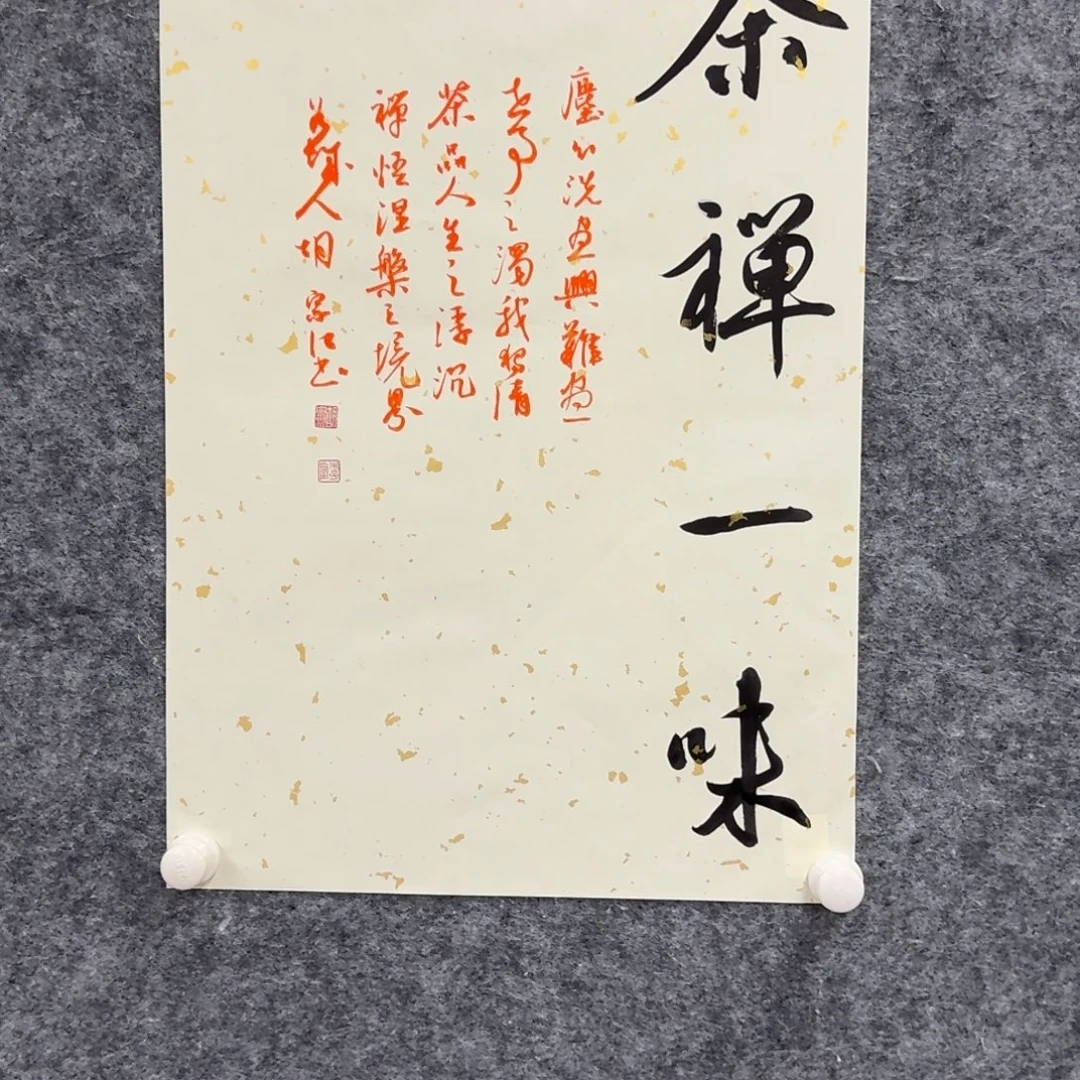 茶禪一味
塵心洗盡興難盡一
世事之濁我獨清
茶品人生之浮沉
禪悟涅槃之境界
人胡家江书